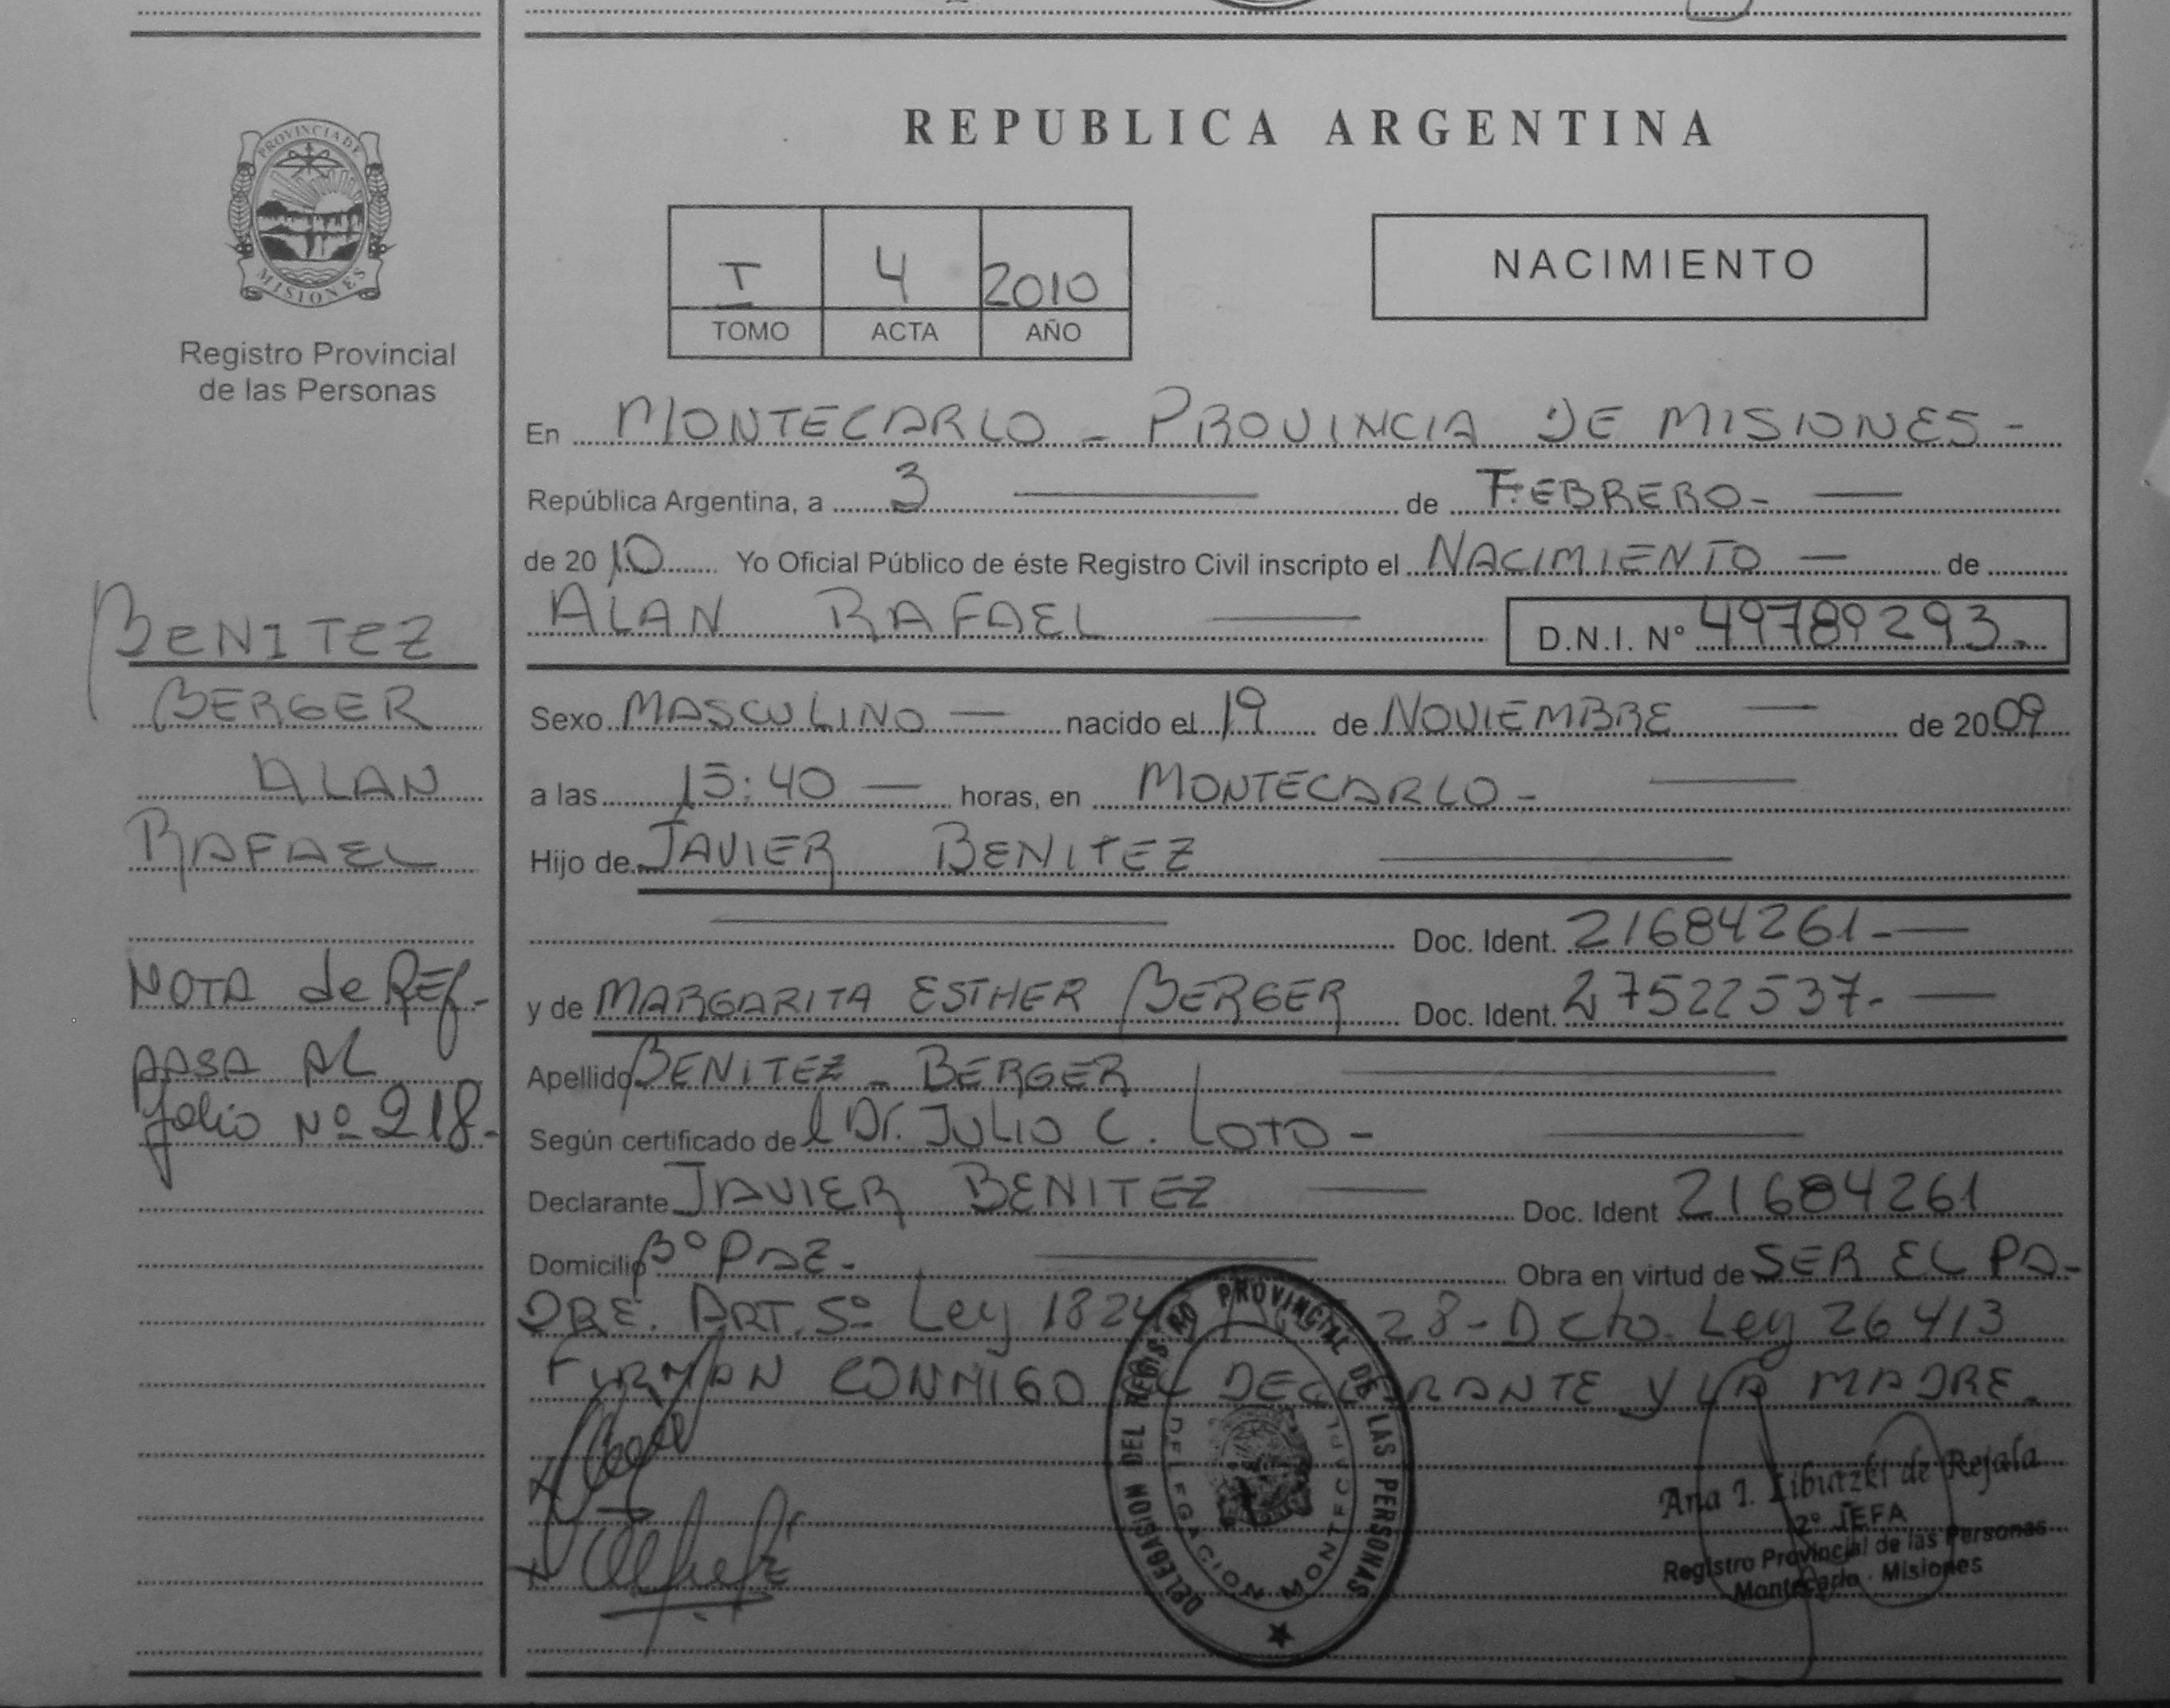 PROVINCIA DE
MISIONES
Registro Provincial
de las Personas
BENITEZ
BERGER
ALAN
RAFAEL
NOTA de REf-
PASA AL
folio Nº 218.-
REPUBLICA ARGENTINA
I 4 2010
TOMO ACTA AÑO
NACIMIENTO
En MONTECARLO - PROVINCIA DE MISIONES -
República Argentina, a 3 de FEBRERO-
de 2010 Yo Oficial Público de éste Registro Civil inscripto el NACIMIENTO de
ALAN RAFAEL D.N.I. Nº 49789293.-
Sexo MASCULINO nacido el 19 de NOVIEMBRE de 2009
a las 15:40 horas, en MONTECARLO -
Hijo de JAVIER BENITEZ
Doc. Ident. 21684261.-
y de MARGARITA ESTHER BERGER Doc. Ident. 27522537.-
Apellido BENITEZ - BERGER
Según certificado del Dr. JULIO C. LOTO -
Declarante JAVIER BENITEZ Doc. Ident 21684261
Domicilio Bº PAZ.- Obra en virtud de SER EL PA-
DRE. ART. 5º Ley 28-Dcto. Ley 26413
FIRMAN CONMIGO EL DECLARANTE Y LA MADRE.
DELEGACION DEL REGISTRO PROVINCIAL DE LAS PERSONAS
DELEGACION MONTECARLO
Ana I. de Rejala
2º JEFA
Registro Provincial de las Personas
Montecarlo - Misiones